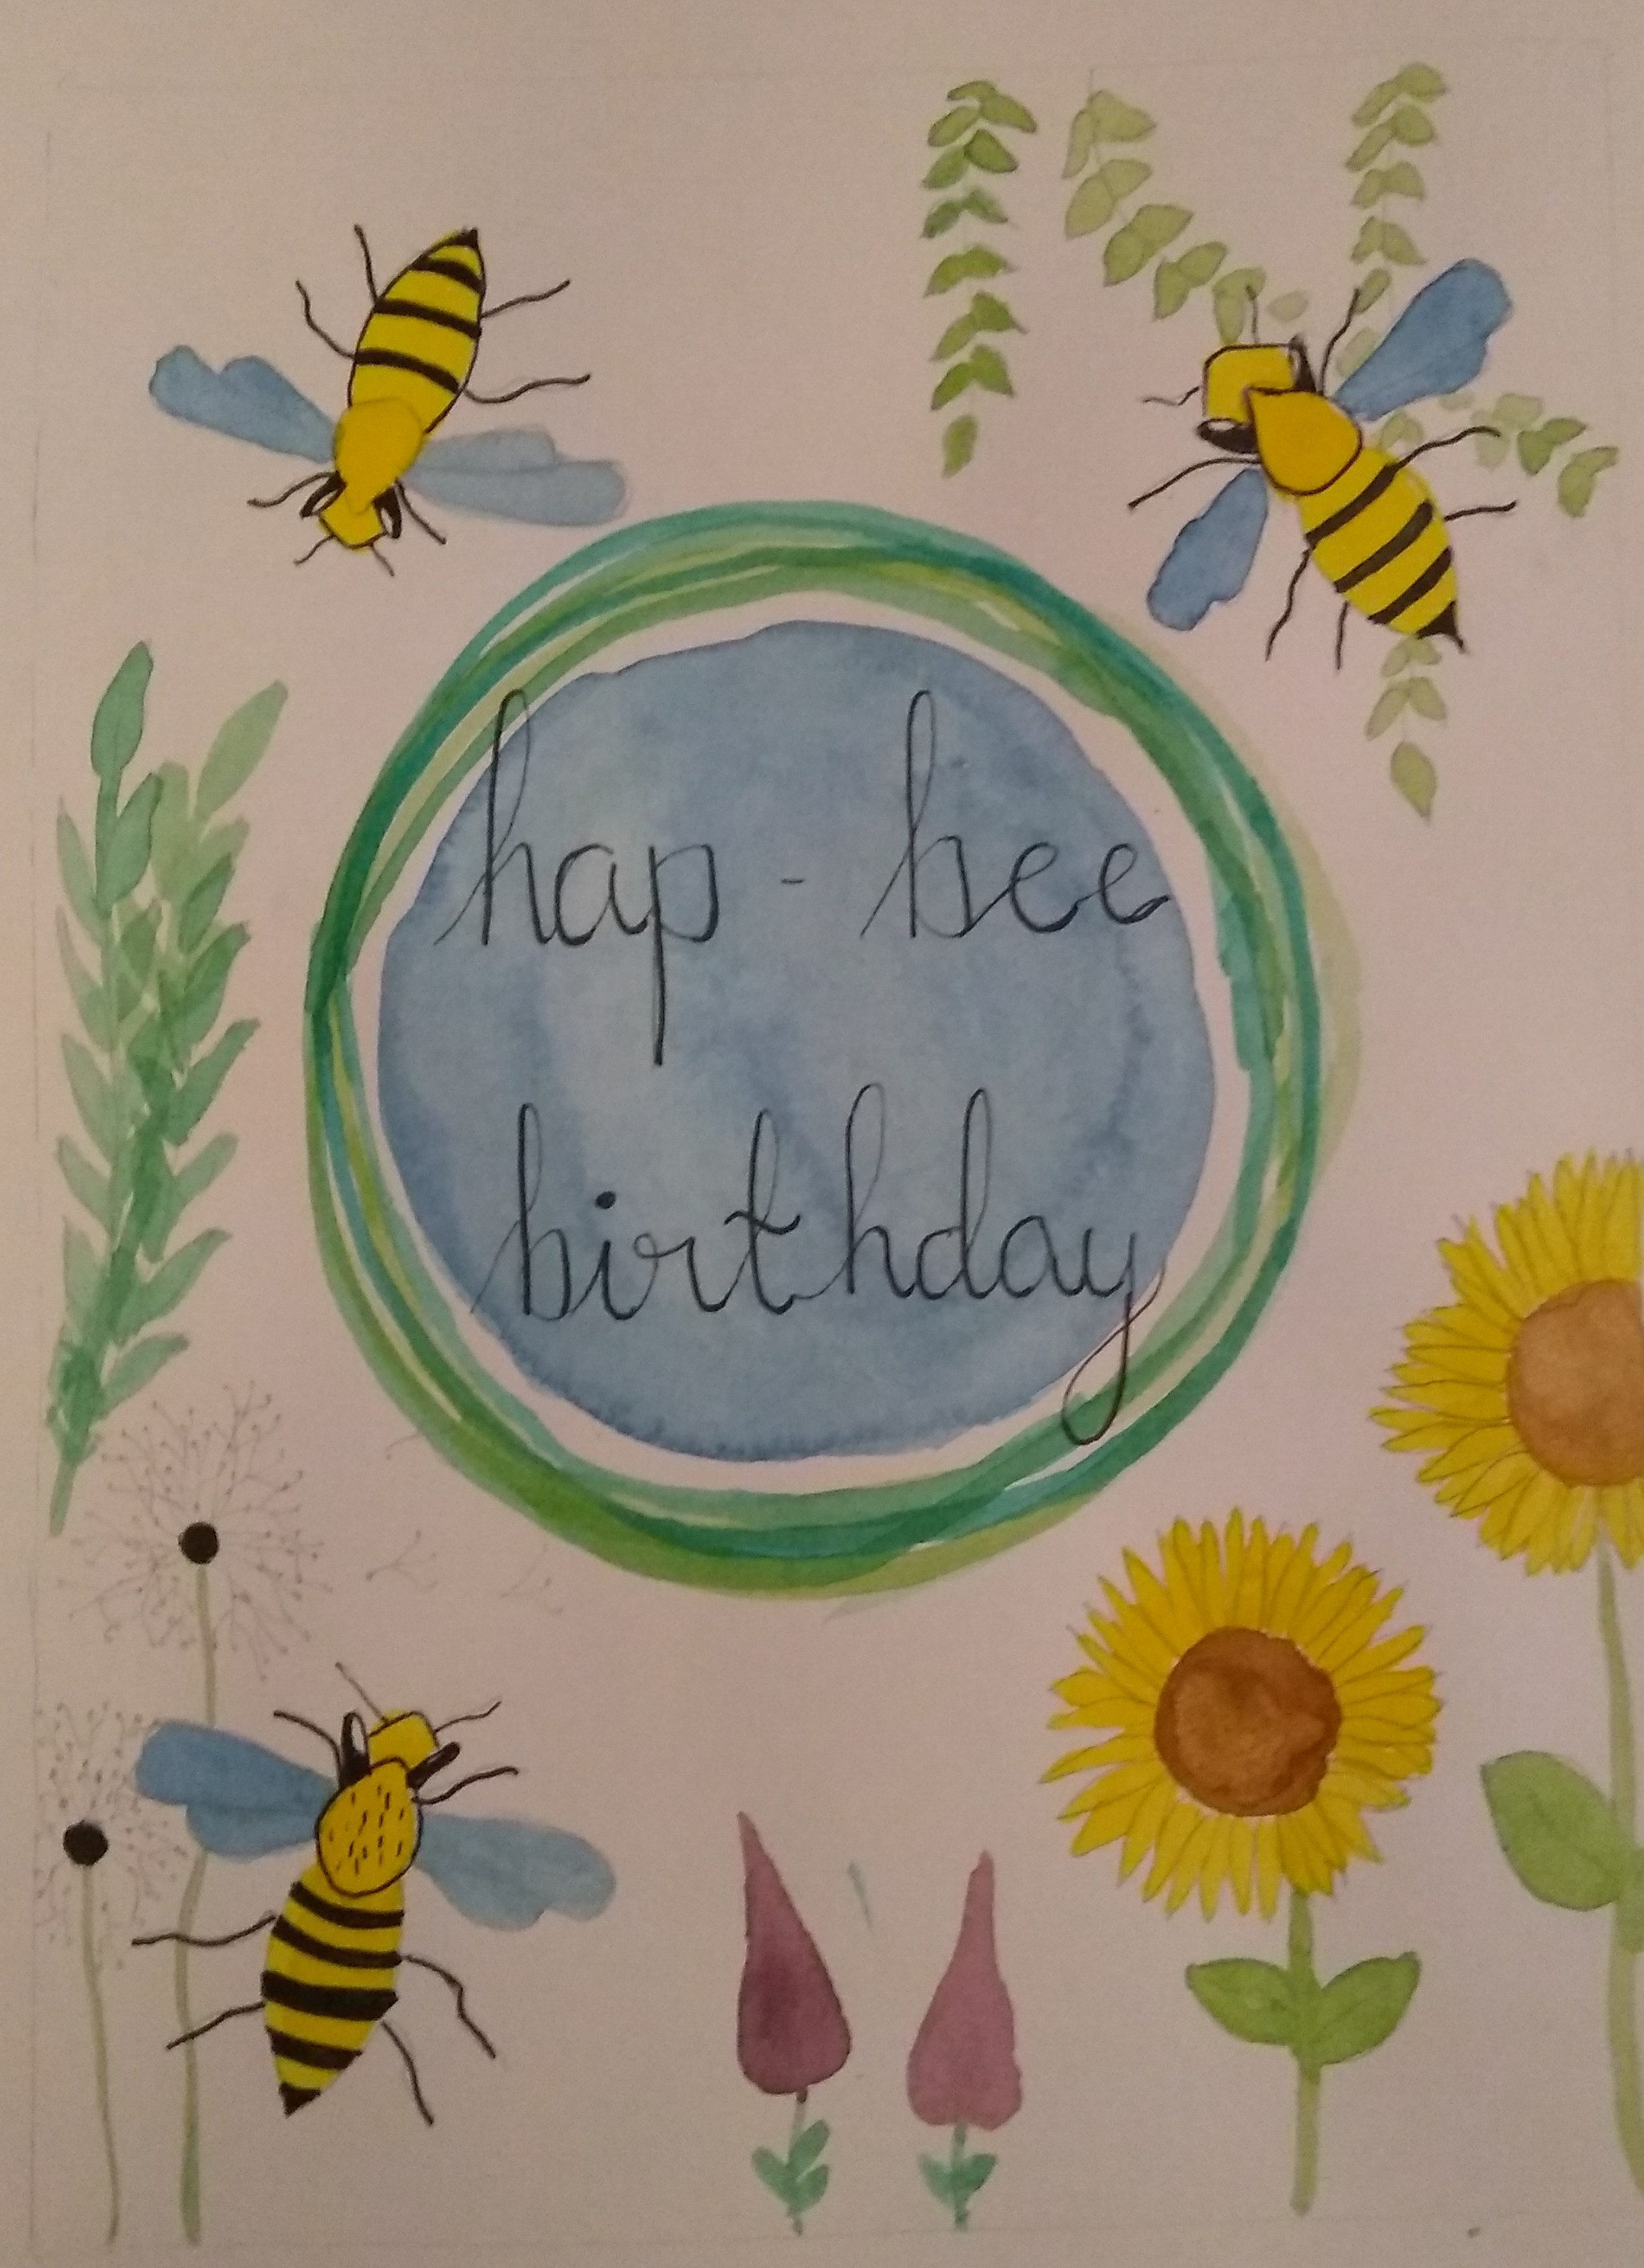 hap - bee
birthday